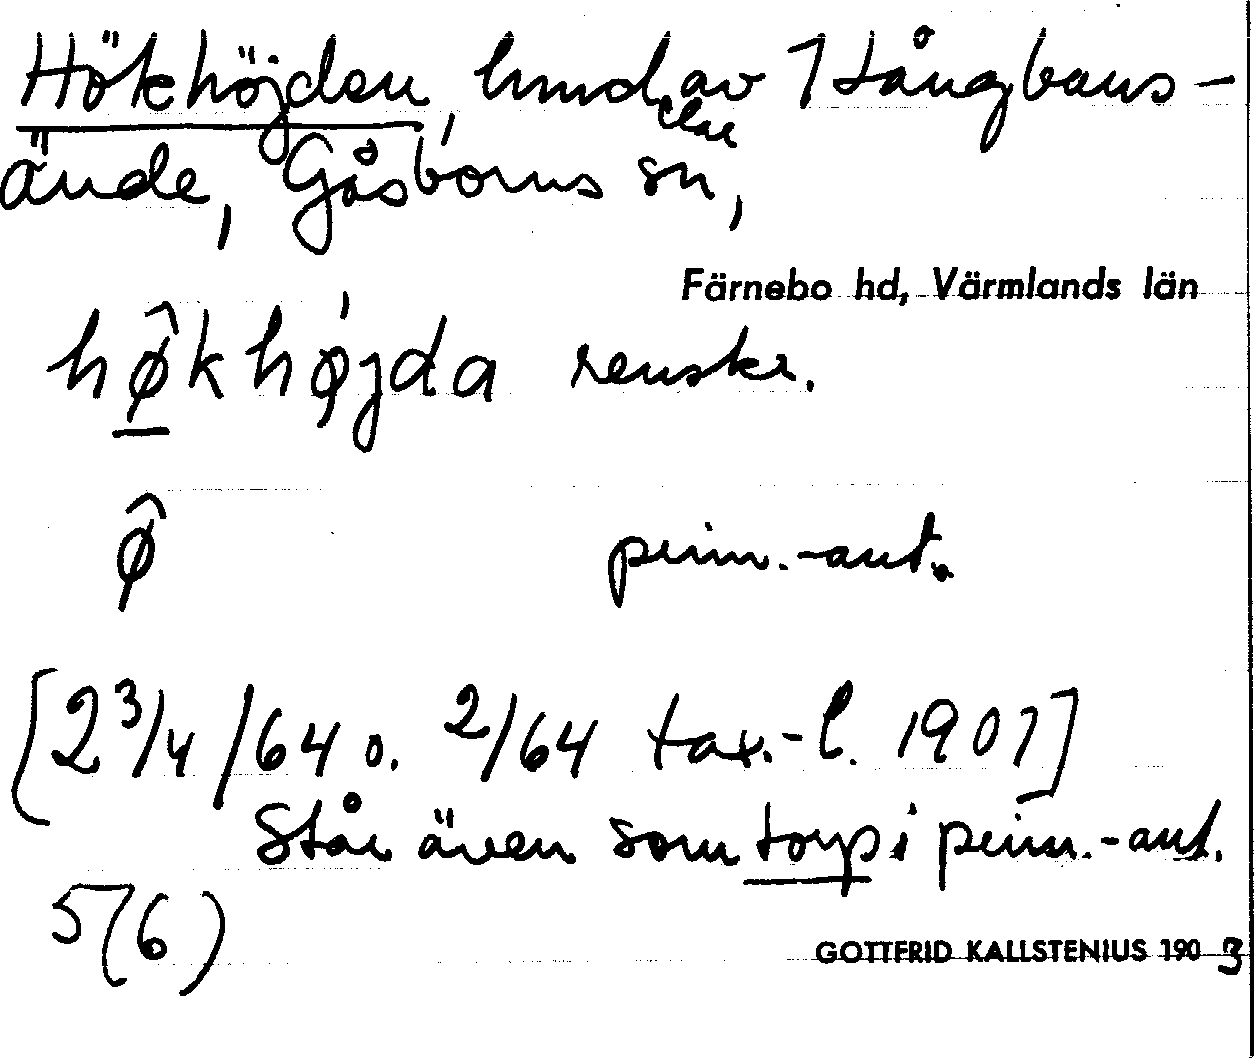 Hökhöjden, hmd av 1 Långbans-
del
ände, Gåsborns sn,
Färnebo hd, Värmlands län
hø̂khøjda renskr.
ø̂ prim.-ant.
[2 3/4/64 o. 2/64 tax.-l. 1907]
Står även som torp i prim.-ant.
5(6)
GOTTFRID KALLSTENIUS 1903